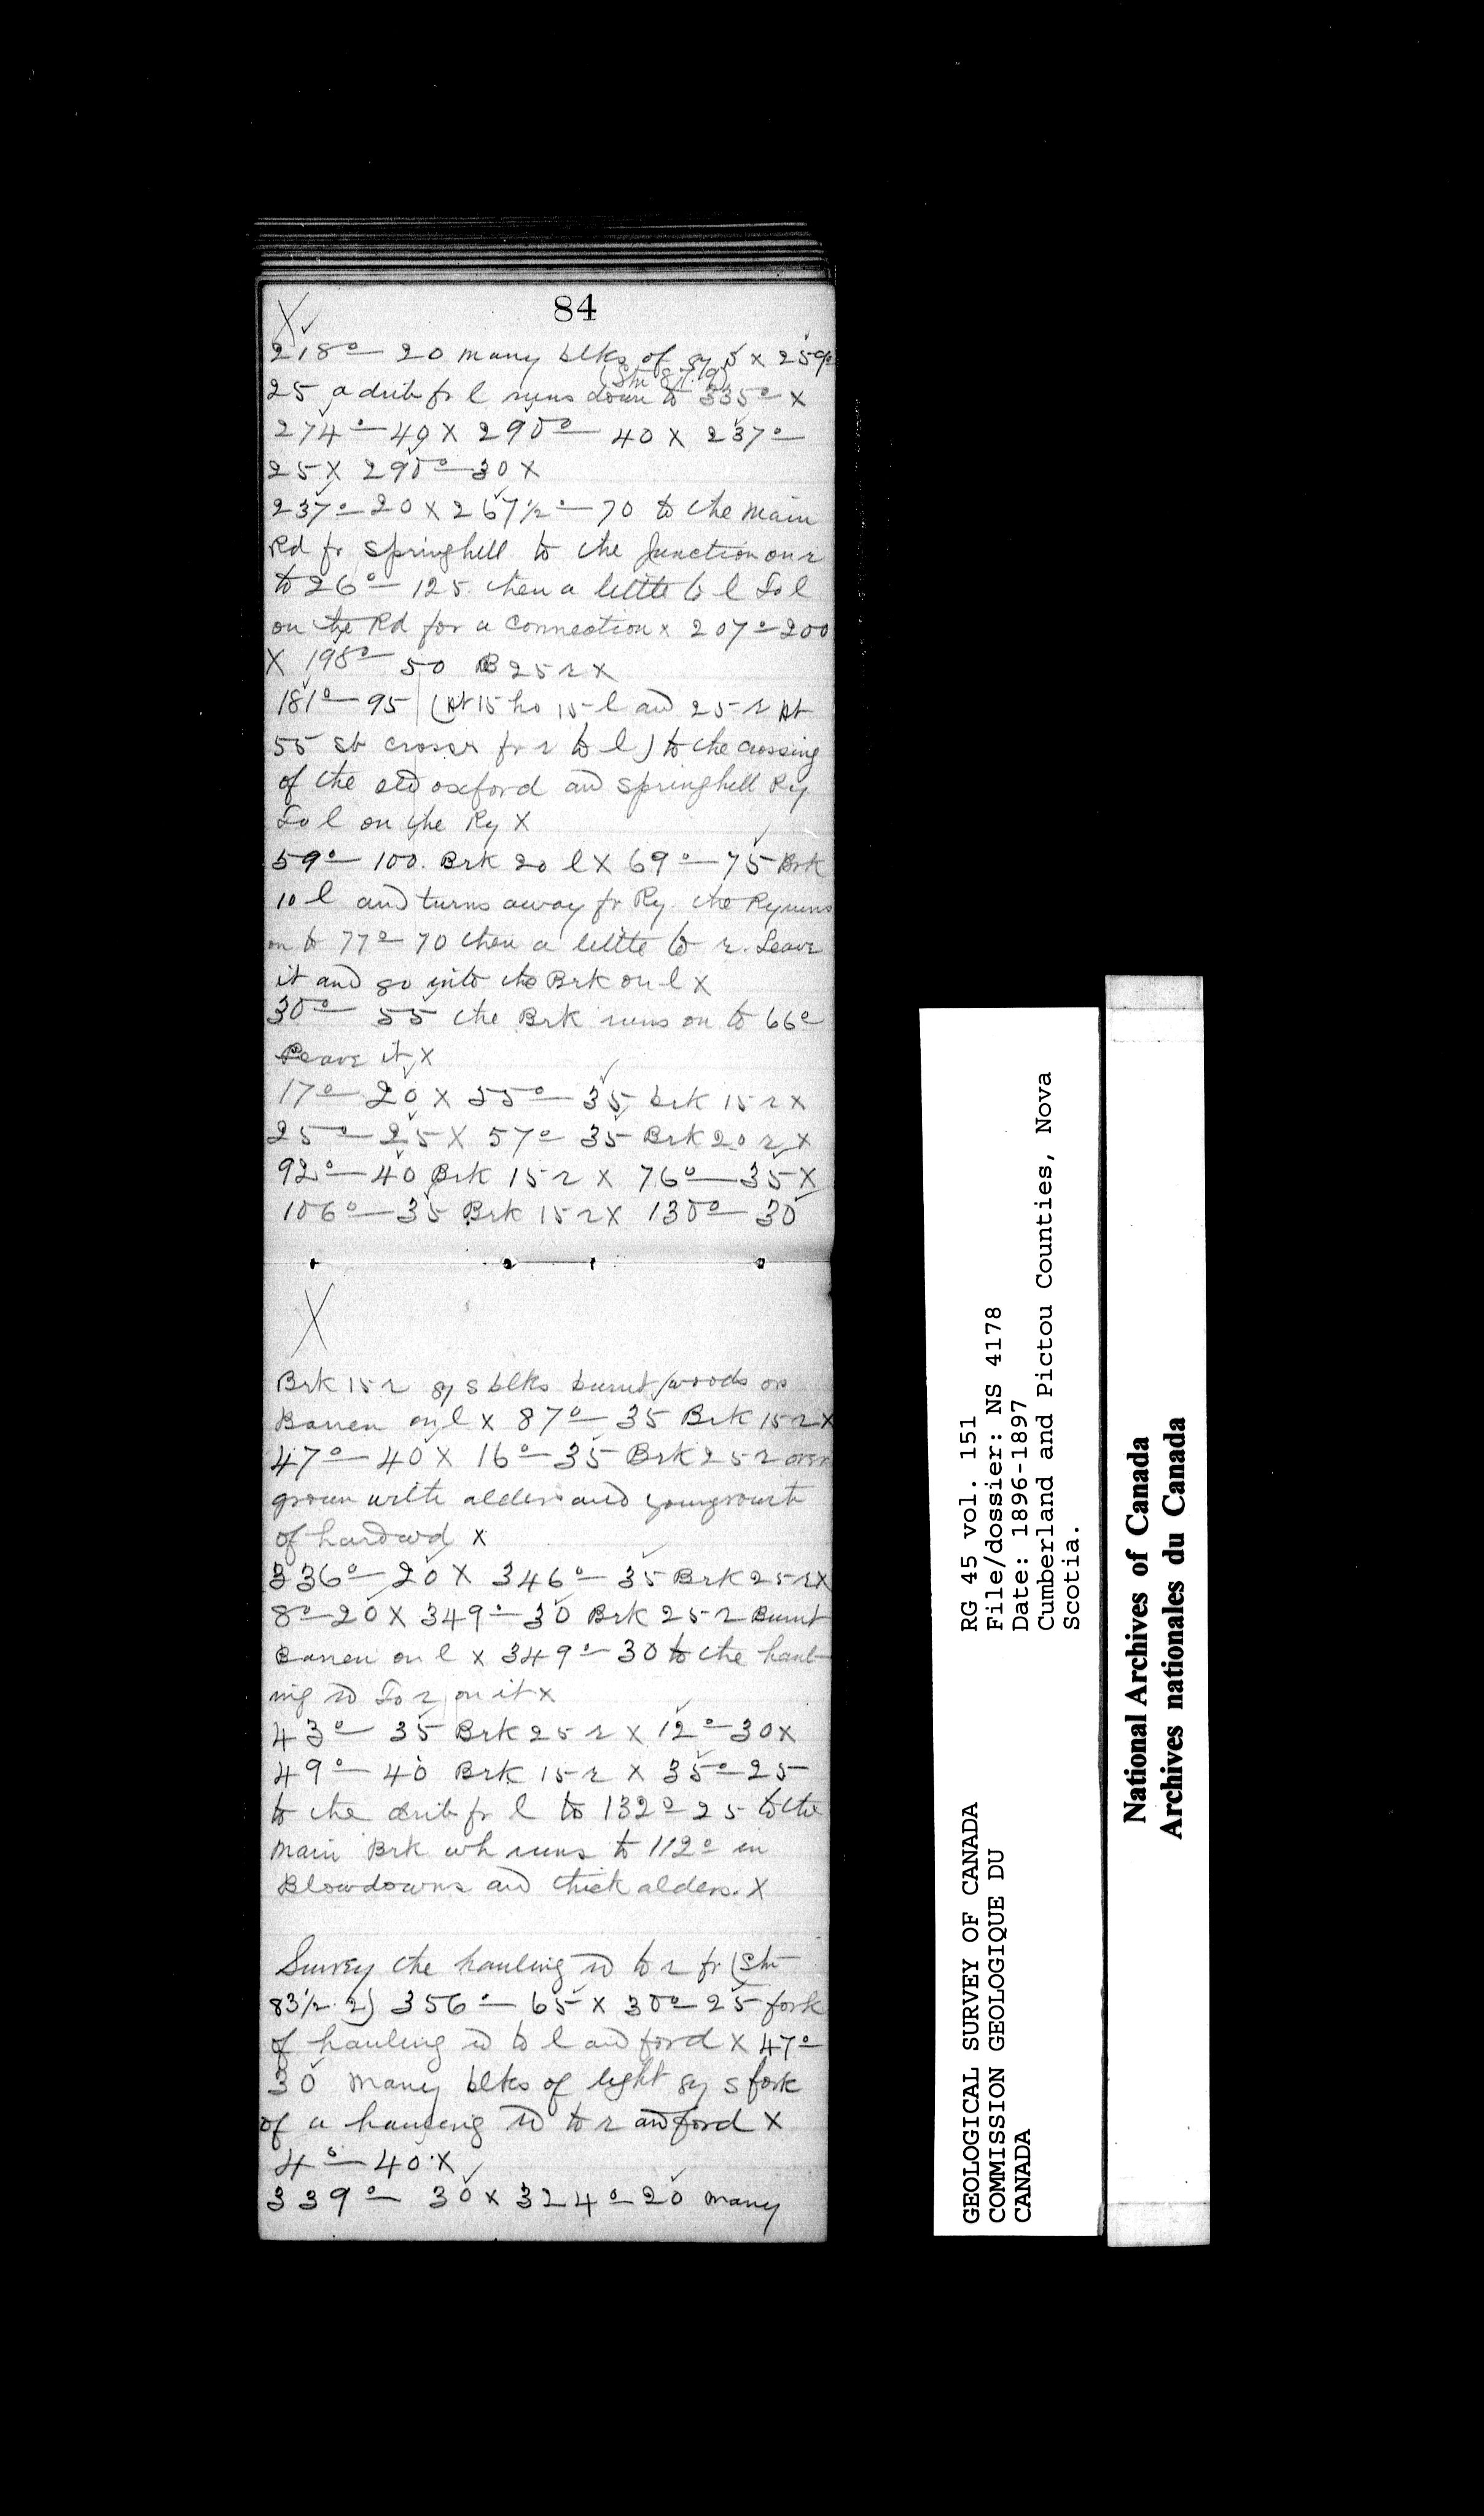 84
X
218° — 20 many blks of gy S X 259°
(Stn 87.9)
25 a drib fr l runs down to 335° X
274° — 40 X 295° — 40 X 237° —
25 X 295° — 30 X
237° — 20 X 267½° — 70 to the main
Rd fr Springhill to the Junction on r
to 26° — 125. then a little to l Fol
on the Rd for a connection X 207° — 200
X 198° — 50 B 25 r X
181° — 95 (At 15 ho 15 l and 25 r At
55 sb crosses fr r to l) to the crossing
of the old oxford and Springhill Ry
Fol on the Ry X
59° — 100. Brk 20 l X 69° — 75 Brk
10 l and turns away fr Ry. the Ry runs
on to 77° — 70 then a little to r. Leave
it and go into the Brk on l X
30° — 55 the Brk runs on to 66°
Leave it X
17° — 20 X 55° — 35 brk 15 r X
25° — 25 X 57° — 35 Brk 20 r X
92° — 40 Brk 15 r X 76° — 35 X
106° — 35 Brk 15 r X 130° — 30
X
Brk 15 r gy S blks burnt woods or
Barren on l X 87° — 35 Brk 15 r X
47° — 40 X 16° — 35 Brk 25 r over
grown with alders and
of hardwd X
336° — 20 X 346° — 35 Brk 25 r X
8° — 20 X 349° — 30 Brk 25 r Burnt
Barren on l X 349° — 30 to the haul-
ing rd Fo r on it X
43° — 35 Brk 25 r X 12° — 30 X
49° — 40 Brk 15 r X 35° — 25
to the drib fr l to 132° — 25 to the
main Brk wh runs to 112° in
Blowdowns and thick alders. X
Survey the hauling rd to r fr (Stn
83½.2) 356° — 65 X 30° — 25 fork
of hauling rd to l and ford X 47° —
30 many blks of light gy S fork
of a hauling rd to r and ford X
4° — 40 X
339° — 30 X 324° — 20 many
GEOLOGICAL SURVEY OF CANADA
COMMISSION GEOLOGIQUE DU
CANADA
RG 45 vol. 151
File/dossier: NS 4178
Date: 1896-1897
Cumberland and Pictou Counties, Nova
Scotia.
National Archives of Canada
Archives nationales du Canada